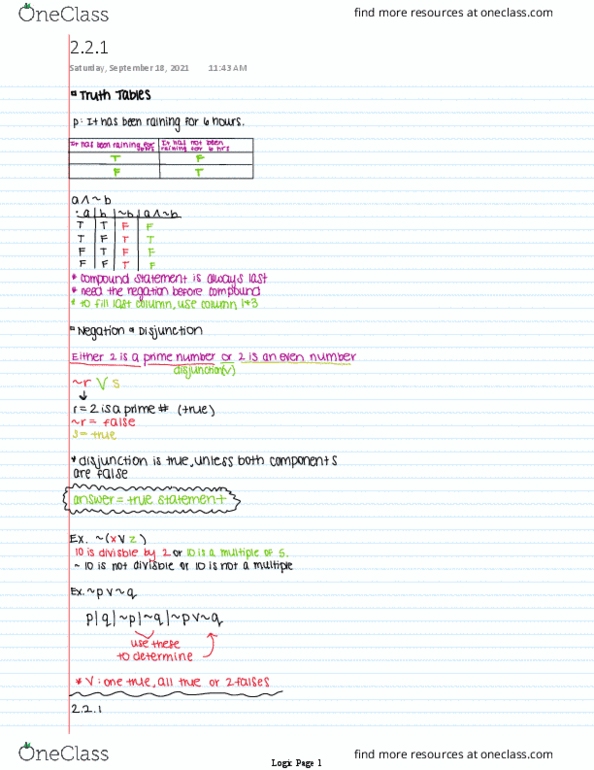 OneClass
find more resources at oneclass.com
2.2.1
Saturday, September 18, 2021 11:43 AM
Truth Tables
p: It has been raining for 6 hours.
It has been raining for 6 hrs | It has not been raining for 6 hrs
T | F
F | T
a ∧ ~b
a | b | ~b | a ∧ ~b
T | T | F | F
T | F | T | T
F | T | F | F
F | F | T | F
* compound statement is always last
* need the negation before compound
* to fill last column, use column 1+3
Negation & Disjunction
Either 2 is a prime number or 2 is an even number
disjunction(v)
~r V s
↓
r = 2 is a prime # (true)
~r = false
s = true
* disjunction is true, unless both components
are false
answer = true statement
Ex. ~(x V z)
10 is divisble by 2 or 10 is a multiple of 5.
~ 10 is not divisible or 10 is not a multiple
Ex. ~p v ~q
p | q | ~p | ~q | ~p v ~q
use these
to determine
* V: one true, all true or 2 falses
2.2.1
OneClass
find more resources at oneclass.com
Logic Page 1